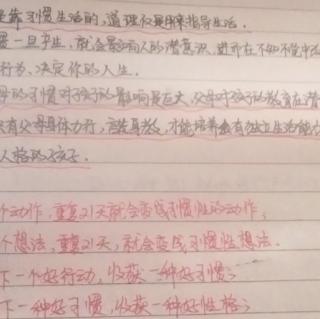 是靠习惯生活的，道理仅是用来指导生活。
一旦产生，就会影响人的潜意识，进而在不知不觉中
行为、决定你的人生。
母的习惯对孩子的影响最巨大，父母对孩子的教育在潜
有父母身体力行，言传身教，才能培养出有独立生活能
人格的孩子。
个动作，重复21天就会变成习惯性的动作，
个想法，重复21天，就会变成习惯性想法。
下一个好行动，收获一种好习惯；
下一种好习惯，收获一种好性格；